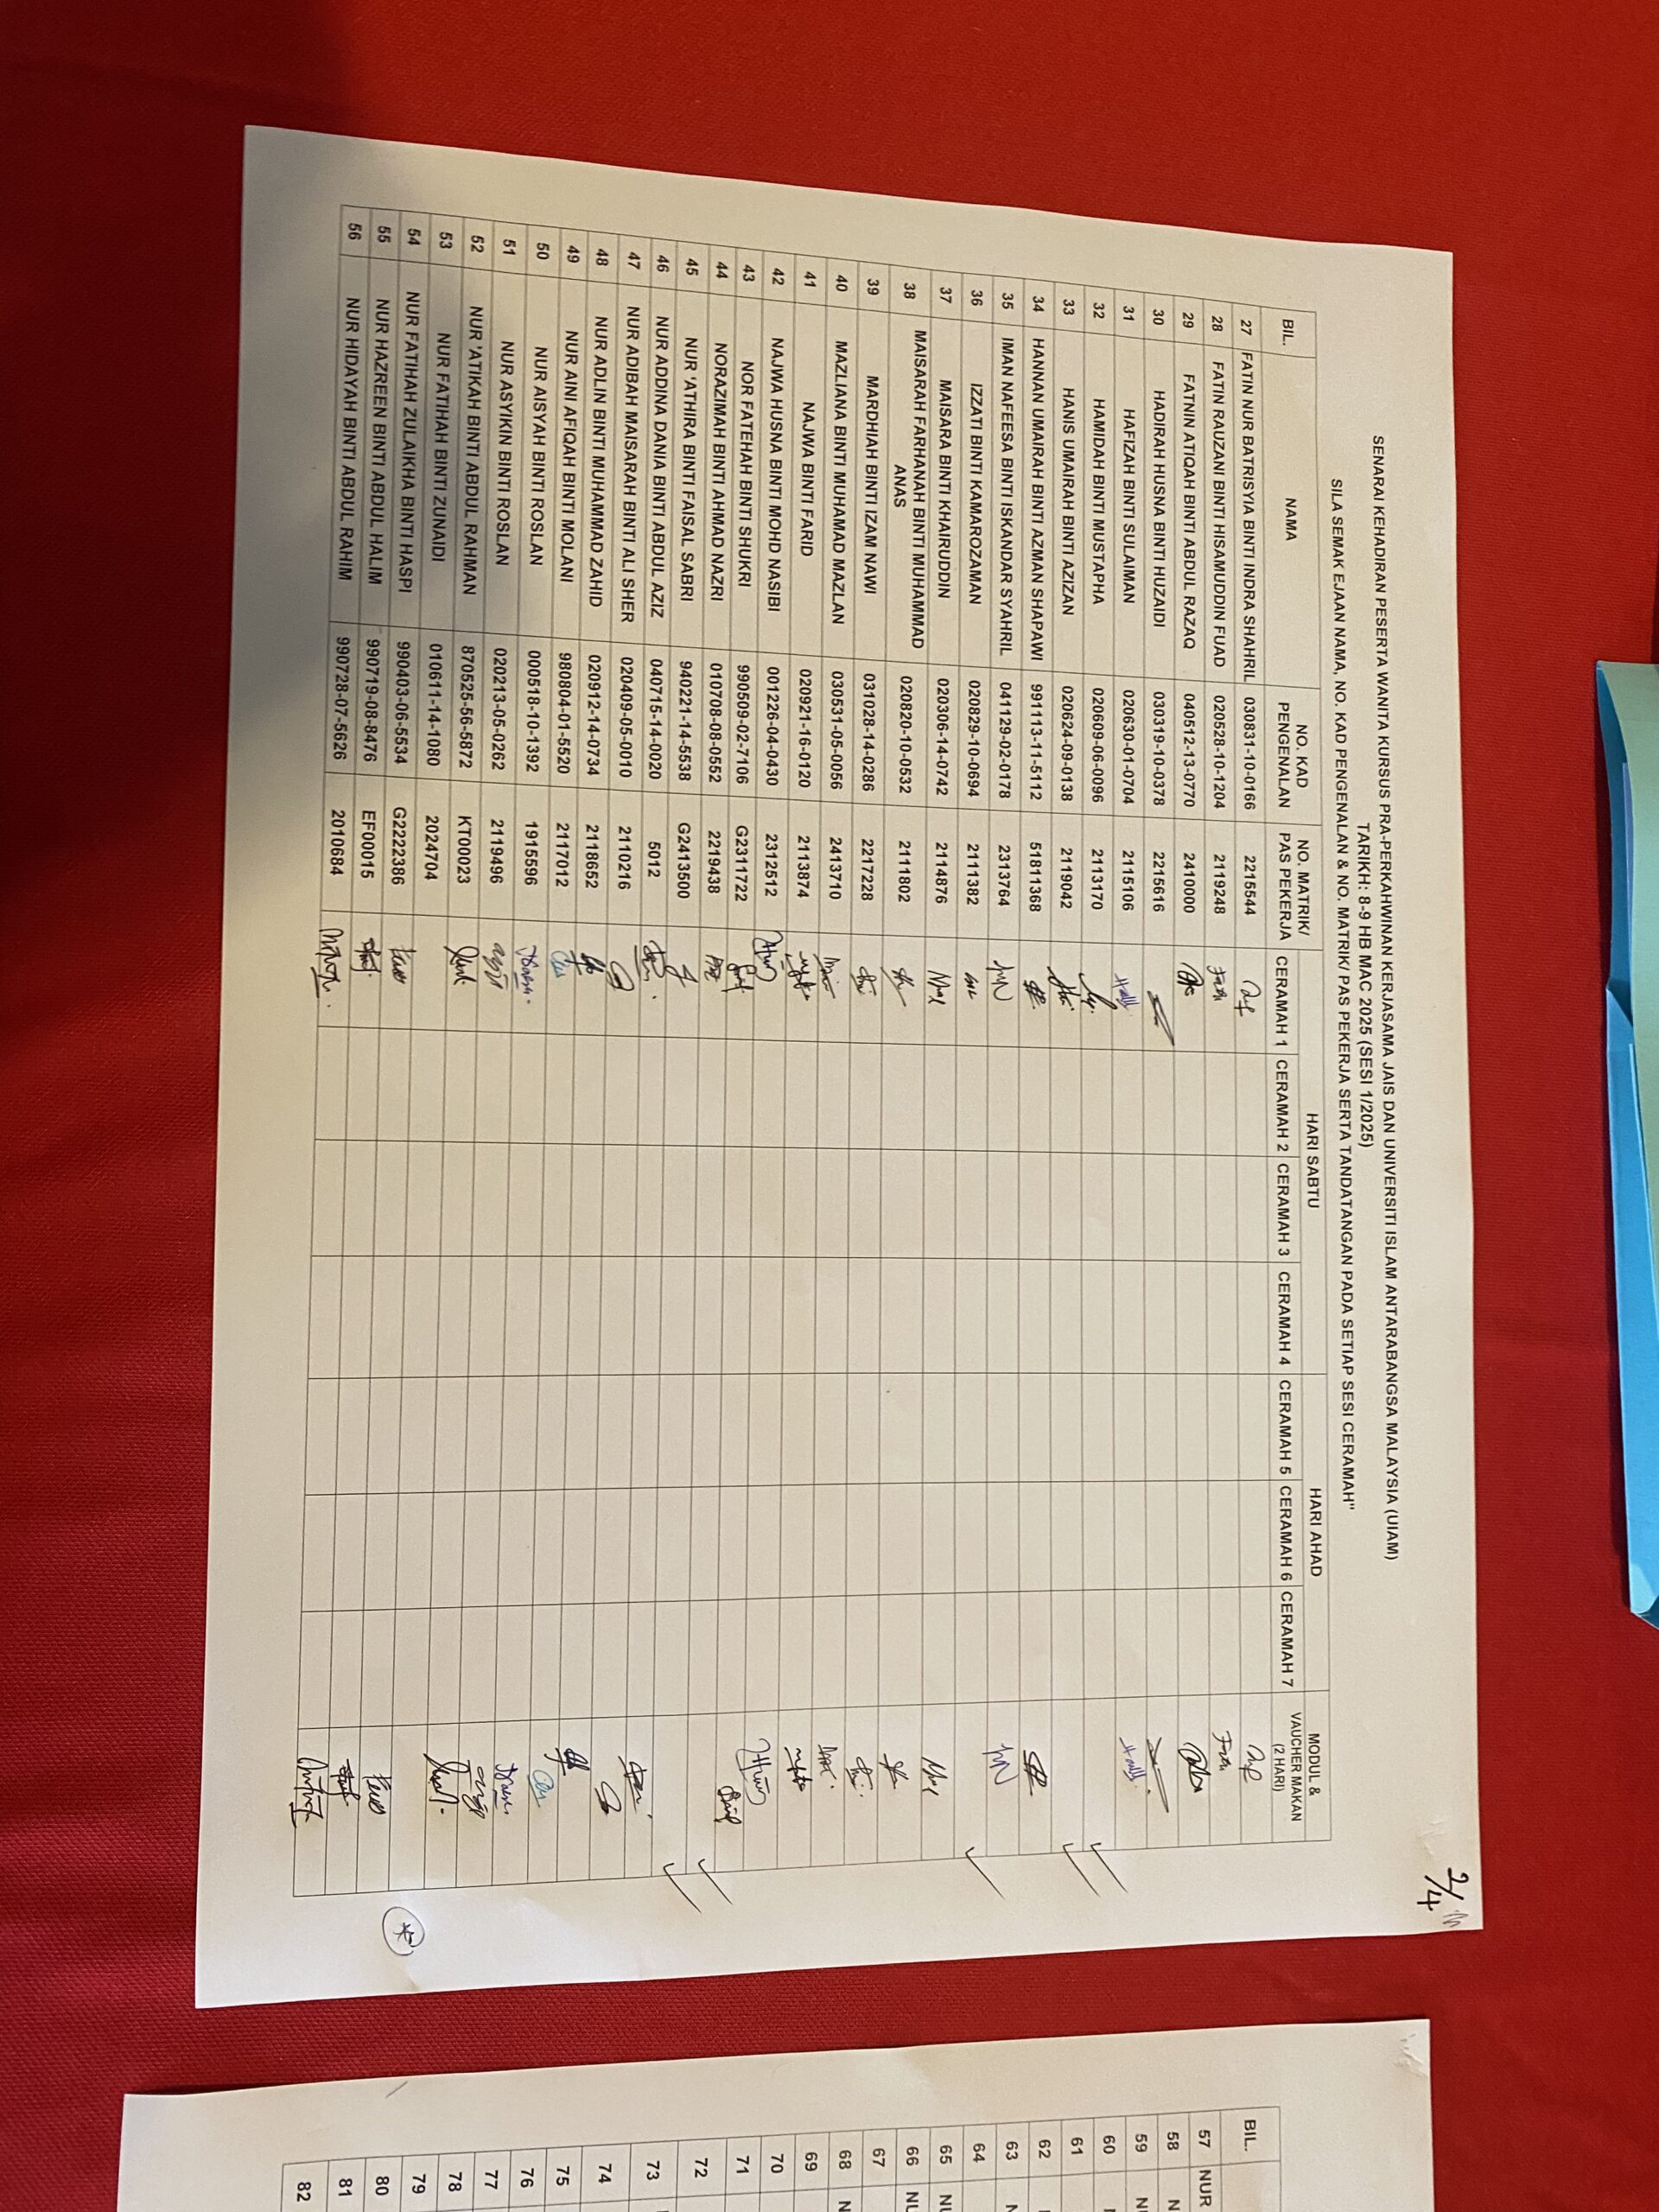 2/4
SENARAI KEHADIRAN PESERTA WANITA KURSUS PRA-PERKAHWINAN KERJASAMA JAIS DAN UNIVERSITI ISLAM ANTARABANGSA MALAYSIA (UIAM)
TARIKH: 8-9 HB MAC 2025 (SESI 1/2025)
SILA SEMAK EJAAN NAMA, NO. KAD PENGENALAN & NO. MATRIK/ PAS PEKERJA SERTA TANDATANGAN PADA SETIAP SESI CERAMAH"
HARI SABTU HARI AHAD
BIL. NAMA NO. KAD PENGENALAN NO. MATRIK/ PAS PEKERJA CERAMAH 1 CERAMAH 2 CERAMAH 3 CERAMAH 4 CERAMAH 5 CERAMAH 6 CERAMAH 7 MODUL & VAUCHER MAKAN (2 HARI)
27 FATIN NUR BATRISYIA BINTI INDRA SHAHRIL 030831-10-0166 2215544
28 FATIN RAUZANI BINTI HISAMUDDIN FUAD 020528-10-1204 2119248
29 FATNIN ATIQAH BINTI ABDUL RAZAQ 040512-13-0770 2410000
30 HADIRAH HUSNA BINTI HUZAIDI 030319-10-0378 2215616
31 HAFIZAH BINTI SULAIMAN 020630-01-0704 2115106
32 HAMIDAH BINTI MUSTAPHA 020609-06-0096 2113170
33 HANIS UMAIRAH BINTI AZIZAN 020624-09-0138 2119042
34 HANNAN UMAIRAH BINTI AZMAN SHAPAWI 991113-11-5112 51811368
35 IMAN NAFEESA BINTI ISKANDAR SYAHRIL 041129-02-0178 2313764
36 IZZATI BINTI KAMAROZAMAN 020829-10-0694 2111382
37 MAISARA BINTI KHAIRUDDIN 020306-14-0742 2114876
38 MAISARAH FARHANAH BINTI MUHAMMAD ANAS 020820-10-0532 2111802
39 MARDHIAH BINTI IZAM NAWI 031028-14-0286 2217228
40 MAZLIANA BINTI MUHAMAD MAZLAN 030531-05-0056 2413710
41 NAJWA BINTI FARID 020921-16-0120 2113874
42 NAJWA HUSNA BINTI MOHD NASIBI 001226-04-0430 2312512
43 NOR FATEHAH BINTI SHUKRI 990509-02-7106 G2311722
44 NORAZIMAH BINTI AHMAD NAZRI 010708-08-0552 2219438
45 NUR 'ATHIRA BINTI FAISAL SABRI 940221-14-5538 G2413500
46 NUR ADDINA DANIA BINTI ABDUL AZIZ 040715-14-0020 5012
47 NUR ADIBAH MAISARAH BINTI ALI SHER 020409-05-0010 2110216
48 NUR ADLIN BINTI MUHAMMAD ZAHID 020912-14-0734 2118652
49 NUR AINI AFIQAH BINTI MOLANI 980804-01-5520 2117012
50 NUR AISYAH BINTI ROSLAN 000518-10-1392 1915596
51 NUR ASYIKIN BINTI ROSLAN 020213-05-0262 2119496
52 NUR 'ATIKAH BINTI ABDUL RAHMAN 870525-56-5872 KT00023
53 NUR FATIHAH BINTI ZUNAIDI 010611-14-1080 2024704
54 NUR FATIHAH ZULAIKHA BINTI HASPI 990403-06-5534 G2222386
55 NUR HAZREEN BINTI ABDUL HALIM 990719-08-8476 EF00015
56 NUR HIDAYAH BINTI ABDUL RAHIM 990728-07-5626 2010684
BIL.
57 NUR
58
59
60
61
62
63
64
65
66
67
68
69
70
71
72
73
74
75
76
77
78
79
80
81
82